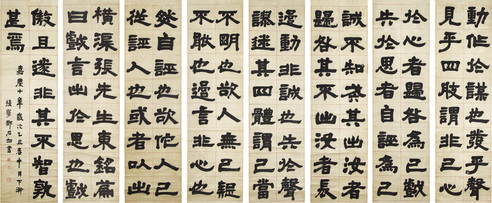 動作於謀也發乎聲
見乎四肢謂非己心
於心者歸咎為己戲
失於思者自誣為己
誠不知戒其出汝者
歸咎其不出汝者長
過動非誠也失於聲
謬迷其四體謂己當
不明也欲人無己疑
不能也過言非心也
然自誣也欲他人己
從誣人也或者以出
橫渠張先生東銘篇
曰戲言出於思也戲
傲且遂非其不智孰
甚焉
嘉慶十年歲次乙丑春中月下浣
鄧石如書